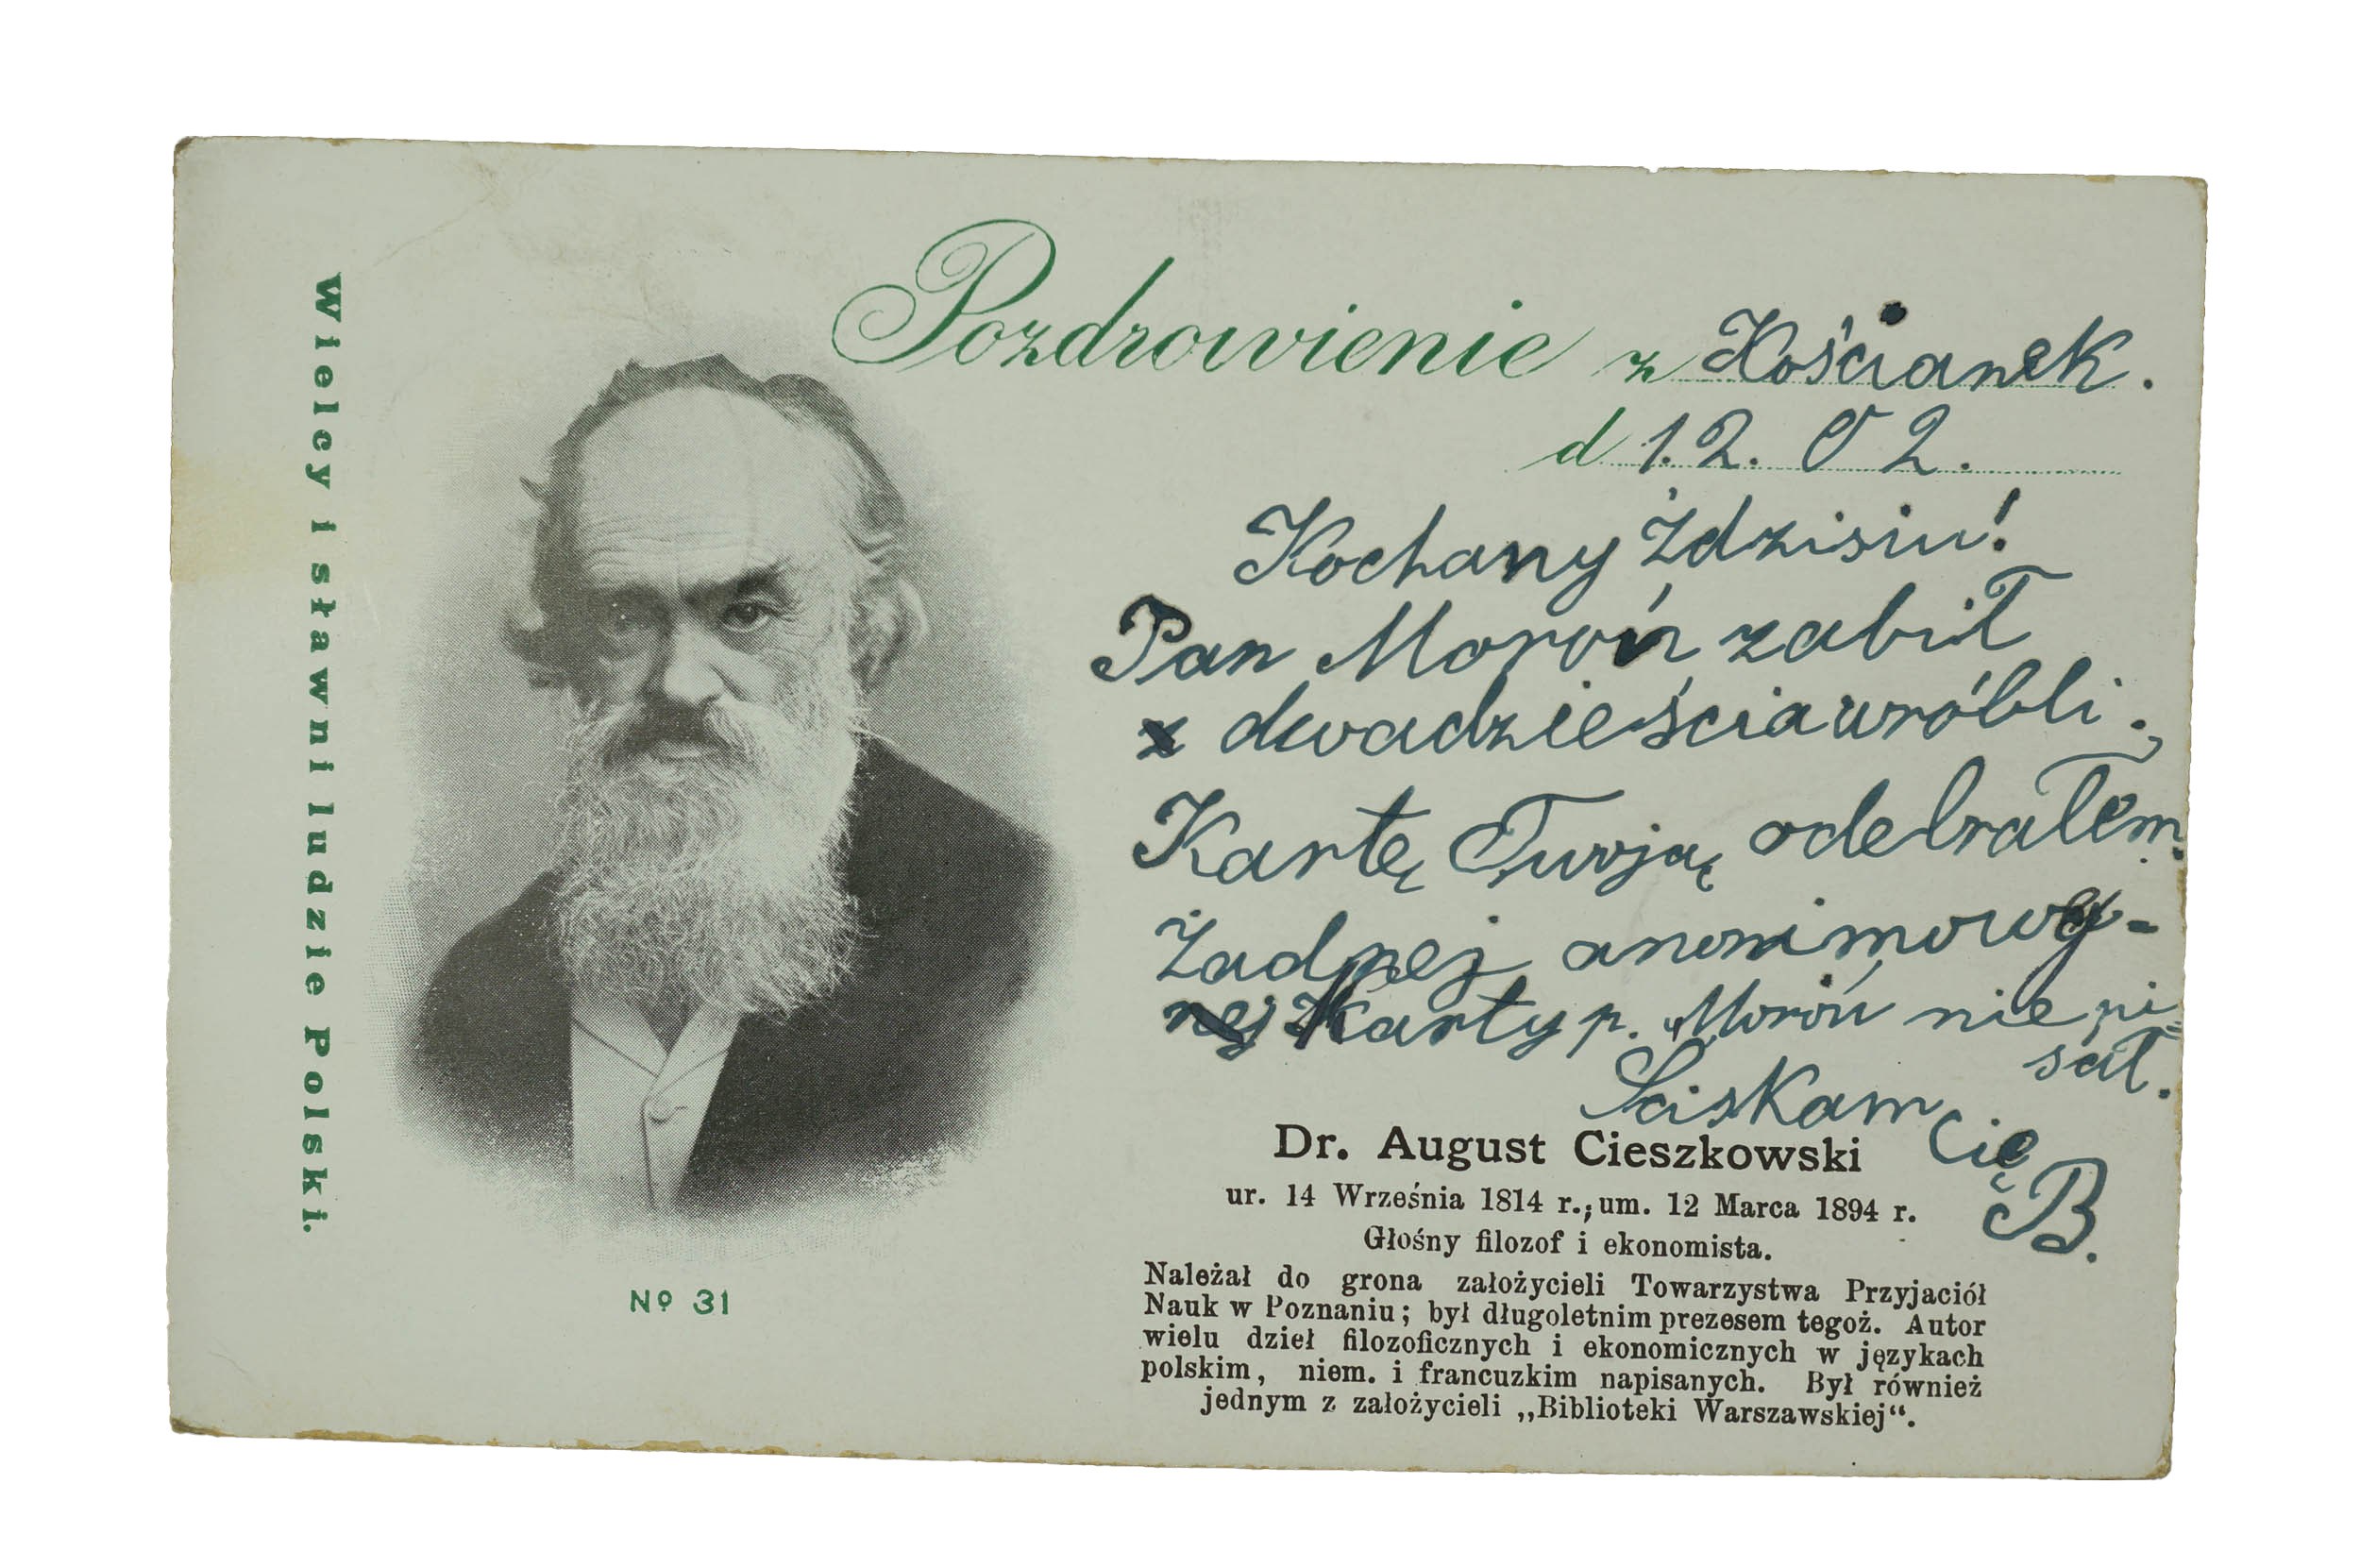 Wielcy i sławni ludzie Polski.
Pozdrowienie z Kościanek.
d 1.2. 02.
Kochany Zdzisiu!
Pan Moroń zabił
dwadzieścia wróbli.
Kartę Twoją odebrałem.
Żadnej anonimowej
Karty p. Moroń nie pi=
sał.
Sciskam Cię
B.
Dr. August Cieszkowski
ur. 14 Września 1814 r.; um. 12 Marca 1894 r.
Głośny filozof i ekonomista.
Należał do grona założycieli Towarzystwa Przyjaciół
Nauk w Poznaniu; był długoletnim prezesem tegoż. Autor
wielu dzieł filozoficznych i ekonomicznych w językach
polskim, niem. i francuzkim napisanych. Był również
jednym z założycieli „Biblioteki Warszawskiej“.
No 31